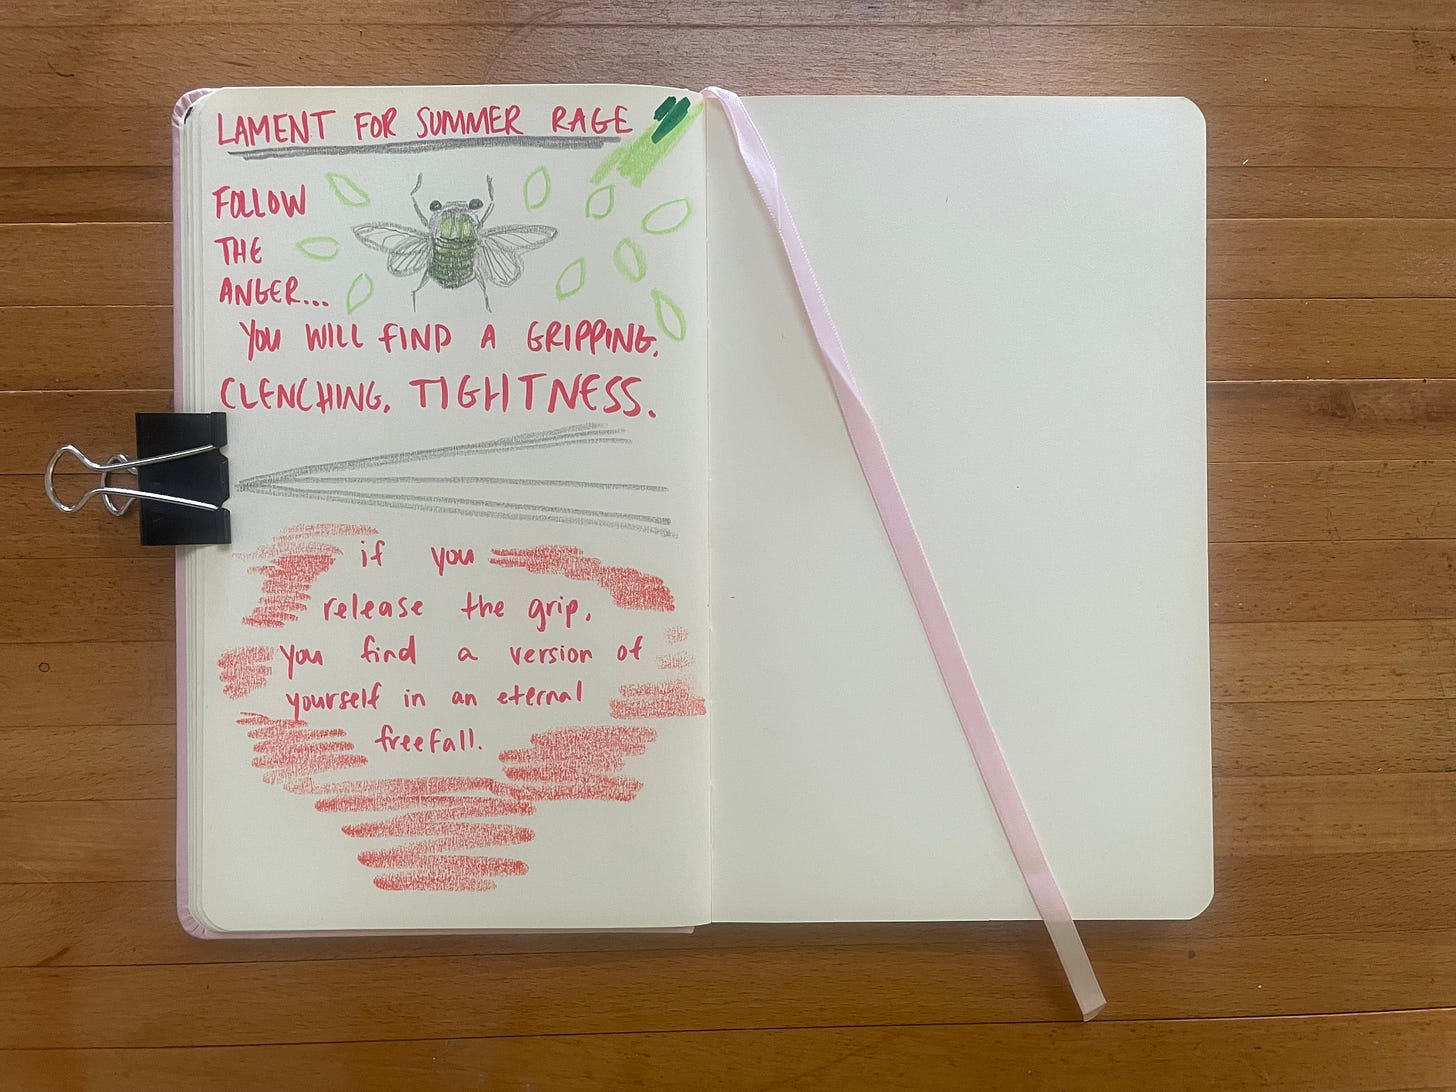 LAMENT FOR SUMMER RAGE
FOLLOW
THE
ANGER...
YOU WILL FIND A GRIPPING,
CLENCHING, TIGHTNESS.
if you
release the grip,
you find a version of
yourself in an eternal
freefall.